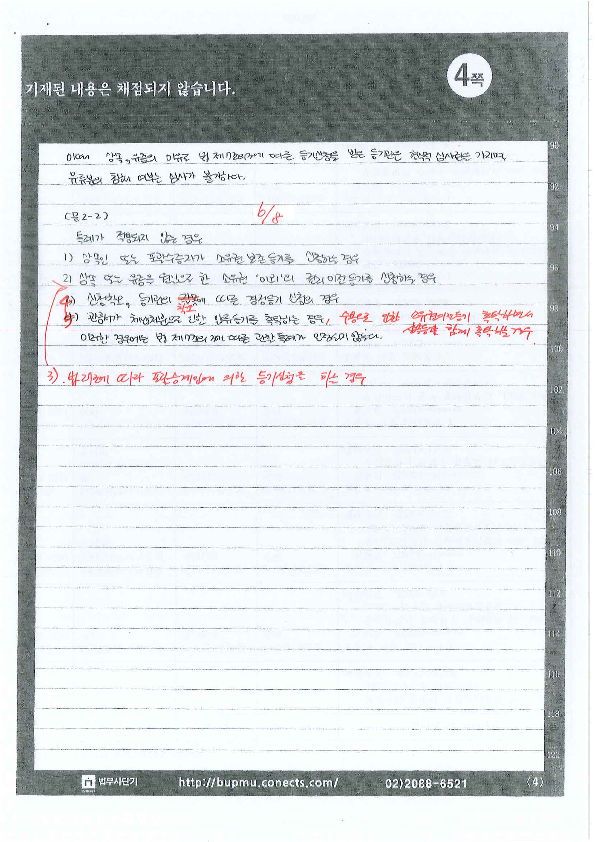 4쪽
기재된 내용은 채점되지 않습니다.
90
이며 상속, 유증의 이유로 법 제7조의3에 따른 등기신청을 받은 등기관은 형식적 심사권만 가지며,
유류분의 침해 여부는 심사가 불가하다.
92
(문2-2)
6/8
94
특례가 적용되지 않는 경우
1) 상속인 또는 포괄수증자가 소유권 보존등기를 신청하는 경우
96
2) 상속 또는 유증을 원인으로 한 소유권 '이외'의 권리 이전등기를 신청하는 경우
4) 신청착오, 등기관의 착오에 따른 경정등기 신청의 경우
98
5) 관공서가 체납처분으로 인한 압류등기를 촉탁하는 경우, 수용으로 인한 소유권이전등기 촉탁하면서
상속등기를 함께 촉탁하는 경우.
이러한 경우에는 법 제7조의3에 따른 관할 특례가 인정되지 않는다.
100
3). 법 에 따라 포괄승계인에 의한 등기신청을 하는 경우
102
104
106
108
110
112
114
116
118
122
법무사단기
http://bupmu.conects.com/
02)2088-6521
(4)